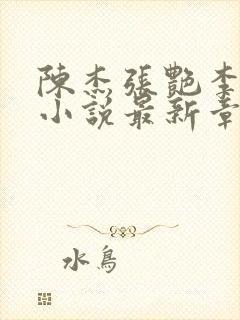 陳杰張艷
小說最新章
水鳥